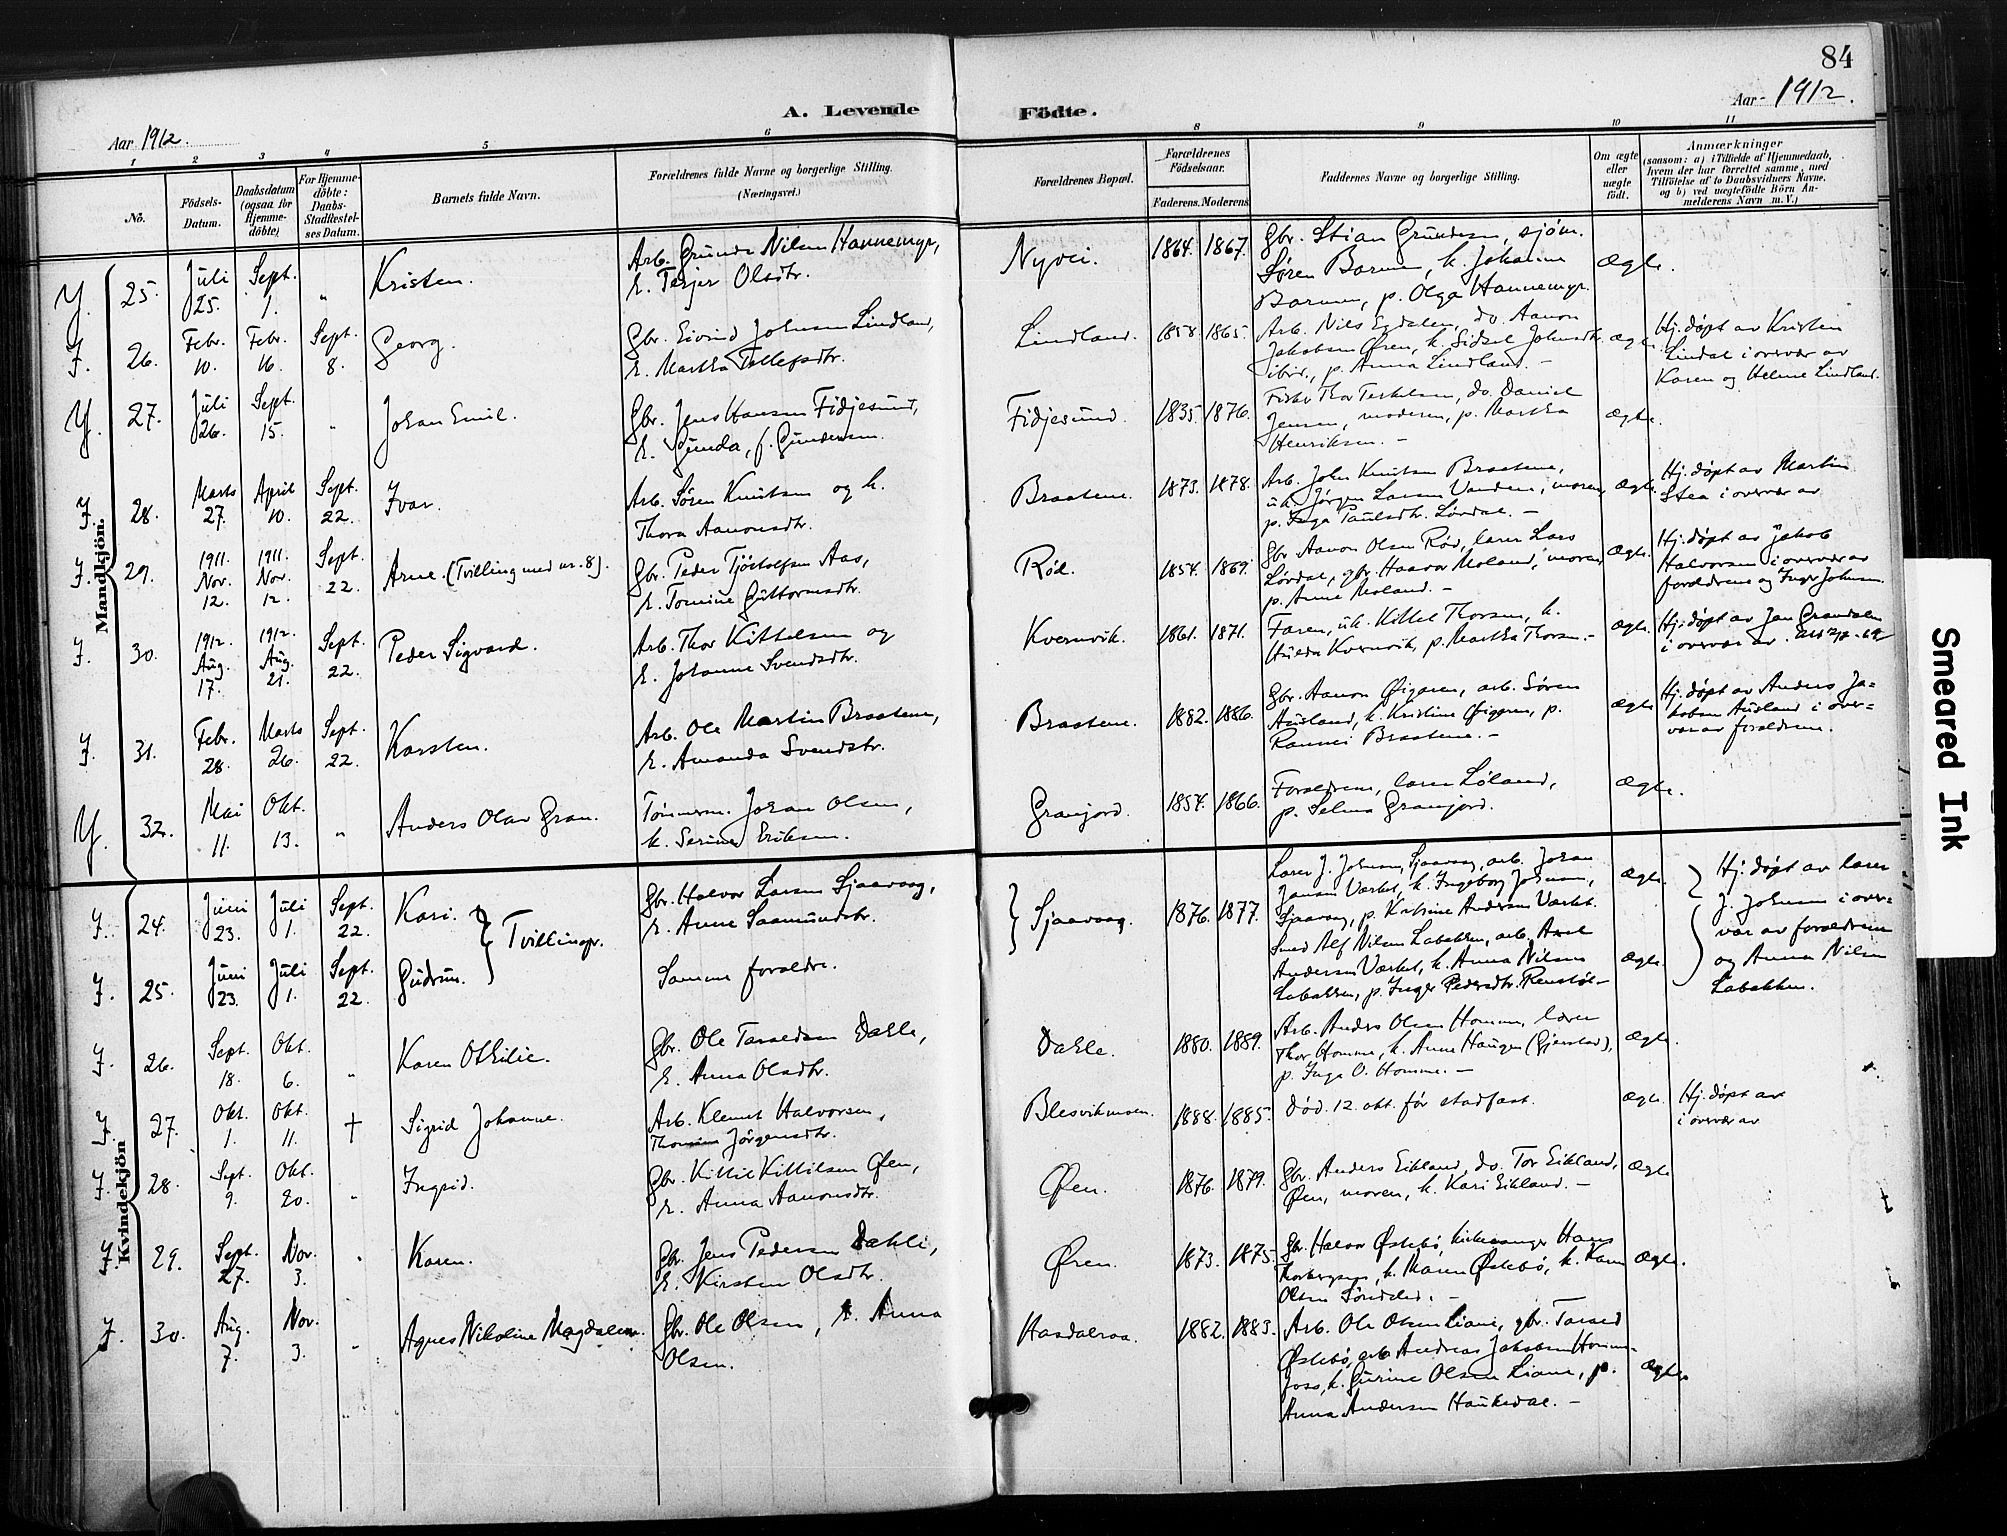 84
A. Levende
Födte.
Aar 1912.
Aar 1912.
1 2 3 4 5 6 8 9 10 11
No.
Födsels-
Datum.
Daabsdatum
(ogsaa for
Hjemme-
döbte)
For Hjemme-
döbte:
Daabs-
Stadfæstel-
ses Datum.
Barnets fulde Navn.
Forældrenes fulde Navne og borgerlige Stilling.
(Næringsvei.)
Forældrenes Bopæl.
Forældrenes
Födselsaar.
Faderens. Moderens.
Faddernes Navne og borgerlige Stilling.
Om ægte
eller
uægte
födt.
Anmærkninger
(saasom: a) i Tilfælde af Hjemmedaab,
hvem der har forrettet samme, med
Tilföielse af to Daabsvidners Navne,
og b) ved uægtefödte Börn An-
melderens Navn m.V.)
Mandkjön.
Y. 25. Juli 25. Sept. 1. " Kristen.
Arb. Gunde Nilsen Hannemyr,
E. Terjer Olsdtr.
Nyvei. 1864. 1867.
Gbr. Stian Gundersen, sjöm.
Søren Barmen, k. Johanne
Barmen, p. Olga Hannemyr.
Ægte.
I. 26. Febr. 10. Febr. 16. Sept. 8. Georg.
Gbr. Eivind Johnsen Lindland,
E. Martha Tellefsdtr.
Lindland. 1858. 1865.
Arb. Nils Egdalen, do. Aanon
Jakobsen Øren, k. Sidsel Johnsdtr.
ibid., p. Anna Lindland. –
Ægte.
Hj. døpt av Kristen
Lindal i overvær av
Karen og Helene Lindland.
Y. 27. Juli 26. Sept. 15. " Johan Emil.
Gbr. Jens Hansen Fidjesund,
E. Gunda, f. Gundersen.
Fidjesund. 1835. 1876.
Fisker Thor Terkelsen, do. Daniel
Jensen, moderen, p. Martha
Henriksen. –
Ægte.
I. 28. Marts 27. April 10. Sept. 22. Ivar.
Arb. Søren Knutsen og k.
Thora Aanonsdtr.
Braatene. 1873. 1878.
Arb. John Knutsen Braatene,
u.k. Jørgen Larsen Vanden, moren,
p. Inga Paulsdtr. Lørdal. –
Ægte.
Hj. døpt av Martin
Stea i overvær av
I. 29. 1911. Nov. 12. 1911. Nov. 12. Sept. 22. Arne. (Tvilling med nr. 8).
Gbr. Peder Tjöstolfsen Aas,
E. Tomine Guttormsdtr.
Röd. 1854. 1869.
Gbr. Aanon Olsen Röd, lærer Lars
Lørdal, gbr. Haavor Moland, moren,
p. Anne Moland. –
Ægte.
Hj. døpt av Jakob
Halvorsen i overvær av
forældrene og Inger Johnsen
I. 30. 1912. Aug. 17. 1912. Aug. 21. Sept. 22. Peder Sigvard.
Arb. Thor Kittelsen og
E. Johanne Svendsdtr.
Kvernvik. 1861. 1871.
Faren, u.k. Kittel Thorsen, k.
Hulda Kvernvik, p. Martha Thorsen. –
Ægte.
Hj. døpt av Jen Grandalen
i overvær av
I. 31. Febr. 28. Marts 26. Sept. 22. Karsten.
Arb. Ole Martin Braatene,
E. Amanda Svendsdtr.
Braatene. 1882. 1886.
Gbr. Aanon Øigaren, arb. Søren
Ausland, k. Kristine Øigaren, p.
Rannei Braatene. –
Ægte.
Hj. døpt av Anders Ja-
kobsen Ausland i over-
vær av forældrene.
Y. 32. Mai 11. Okt. 13. " Anders Olav Gran.
Tömmerm. Johan Olsen,
k. Serine Eriksen.
Granjord. 1854. 1866.
Forældrene, lærer Löland,
p. Selma Granjord.
Ægte.
Kvindekjön
I. 24. Juni 23. Juli 1. Sept. 22. Kari. } Tvillinger.
Gbr. Halvor Larsen Sjaavaag,
E. Anne Saamundsdtr.
Sjaavaag. 1876. 1877.
Lærer J. Johnsen, Sjaavaag, arb. Johan
Jansen Værket, k. Ingeborg Johnsen,
Sjaavaag, p. Katrine Andersen Værket.
Ægte.
Hj. døpt av lærer
J. Johnsen i over-
vær av forældrene
og Anna Nilsen
Labakken.
I. 25. Juni 23. Juli 1. Sept. 22. Gudrun.
Samme forældre.
Smed Alf Nilsen Labakken, arb. Axel
Andersen Værket, k. Anna Nilsen
Labakken, p. Inger Pedersdtr. Renstöl –
Ægte.
I. 26. Sept. 18. Okt. 6. " Karen Othilie.
Gbr. Ole Taraldsen Dahle,
E. Anna Olsdtr.
Dahle. 1880. 1889.
Arb. Anders Olsen Homme, lærer
Thor Homme, k. Anne Haugen (Gjerstad),
p. Inga O. Homme. –
Ægte.
I. 27. Okt. 1. Okt. 11. † Sigrid Johanne.
Arb. Klemet Halvorsen,
Thomine Jörgensdtr.
Blesvikmoen. 1888. 1885.
död. 12. okt. för stadfæst.
Ægte.
Hj. døpt av
i overvær av
I. 28. Sept. 9. Okt. 20. " Ingrid.
Gbr. Kittil Kittilsen Øen,
E. Anna Aanonsdtr.
Øen. 1876. 1879.
Gbr. Anders Eikland, do. Tor Eikland,
Øen, moren, k. Kari Eikland. –
Ægte
I. 29. Sept. 27. Nov. 3. " Karen.
Gbr. Jens Pedersen Dahle,
E. Kirsten Olsdtr.
Øren. 1873. 1875.
Gbr. Halvor Østebö, kirkesanger Hans
Thorbergsen, k. Maren Østebö, k. Karen
Olsen Söndeled. –
Ægte.
I. 30. Aug. 7. Nov. 3. " Agnes Nikoline Magdalena.
Gbr. Ole Olsen, k. Anna
Olsen.
Haadalsaa. 1882. 1883.
Arb. Ole Olsen Liane, gbr. Tarald
Østebö, arb. Andreas Jakobsen Homme-
foss, k. Gurine Olsen Liane, p.
Anna Andersen Haukedal. –
Ægte.
Smeared Ink